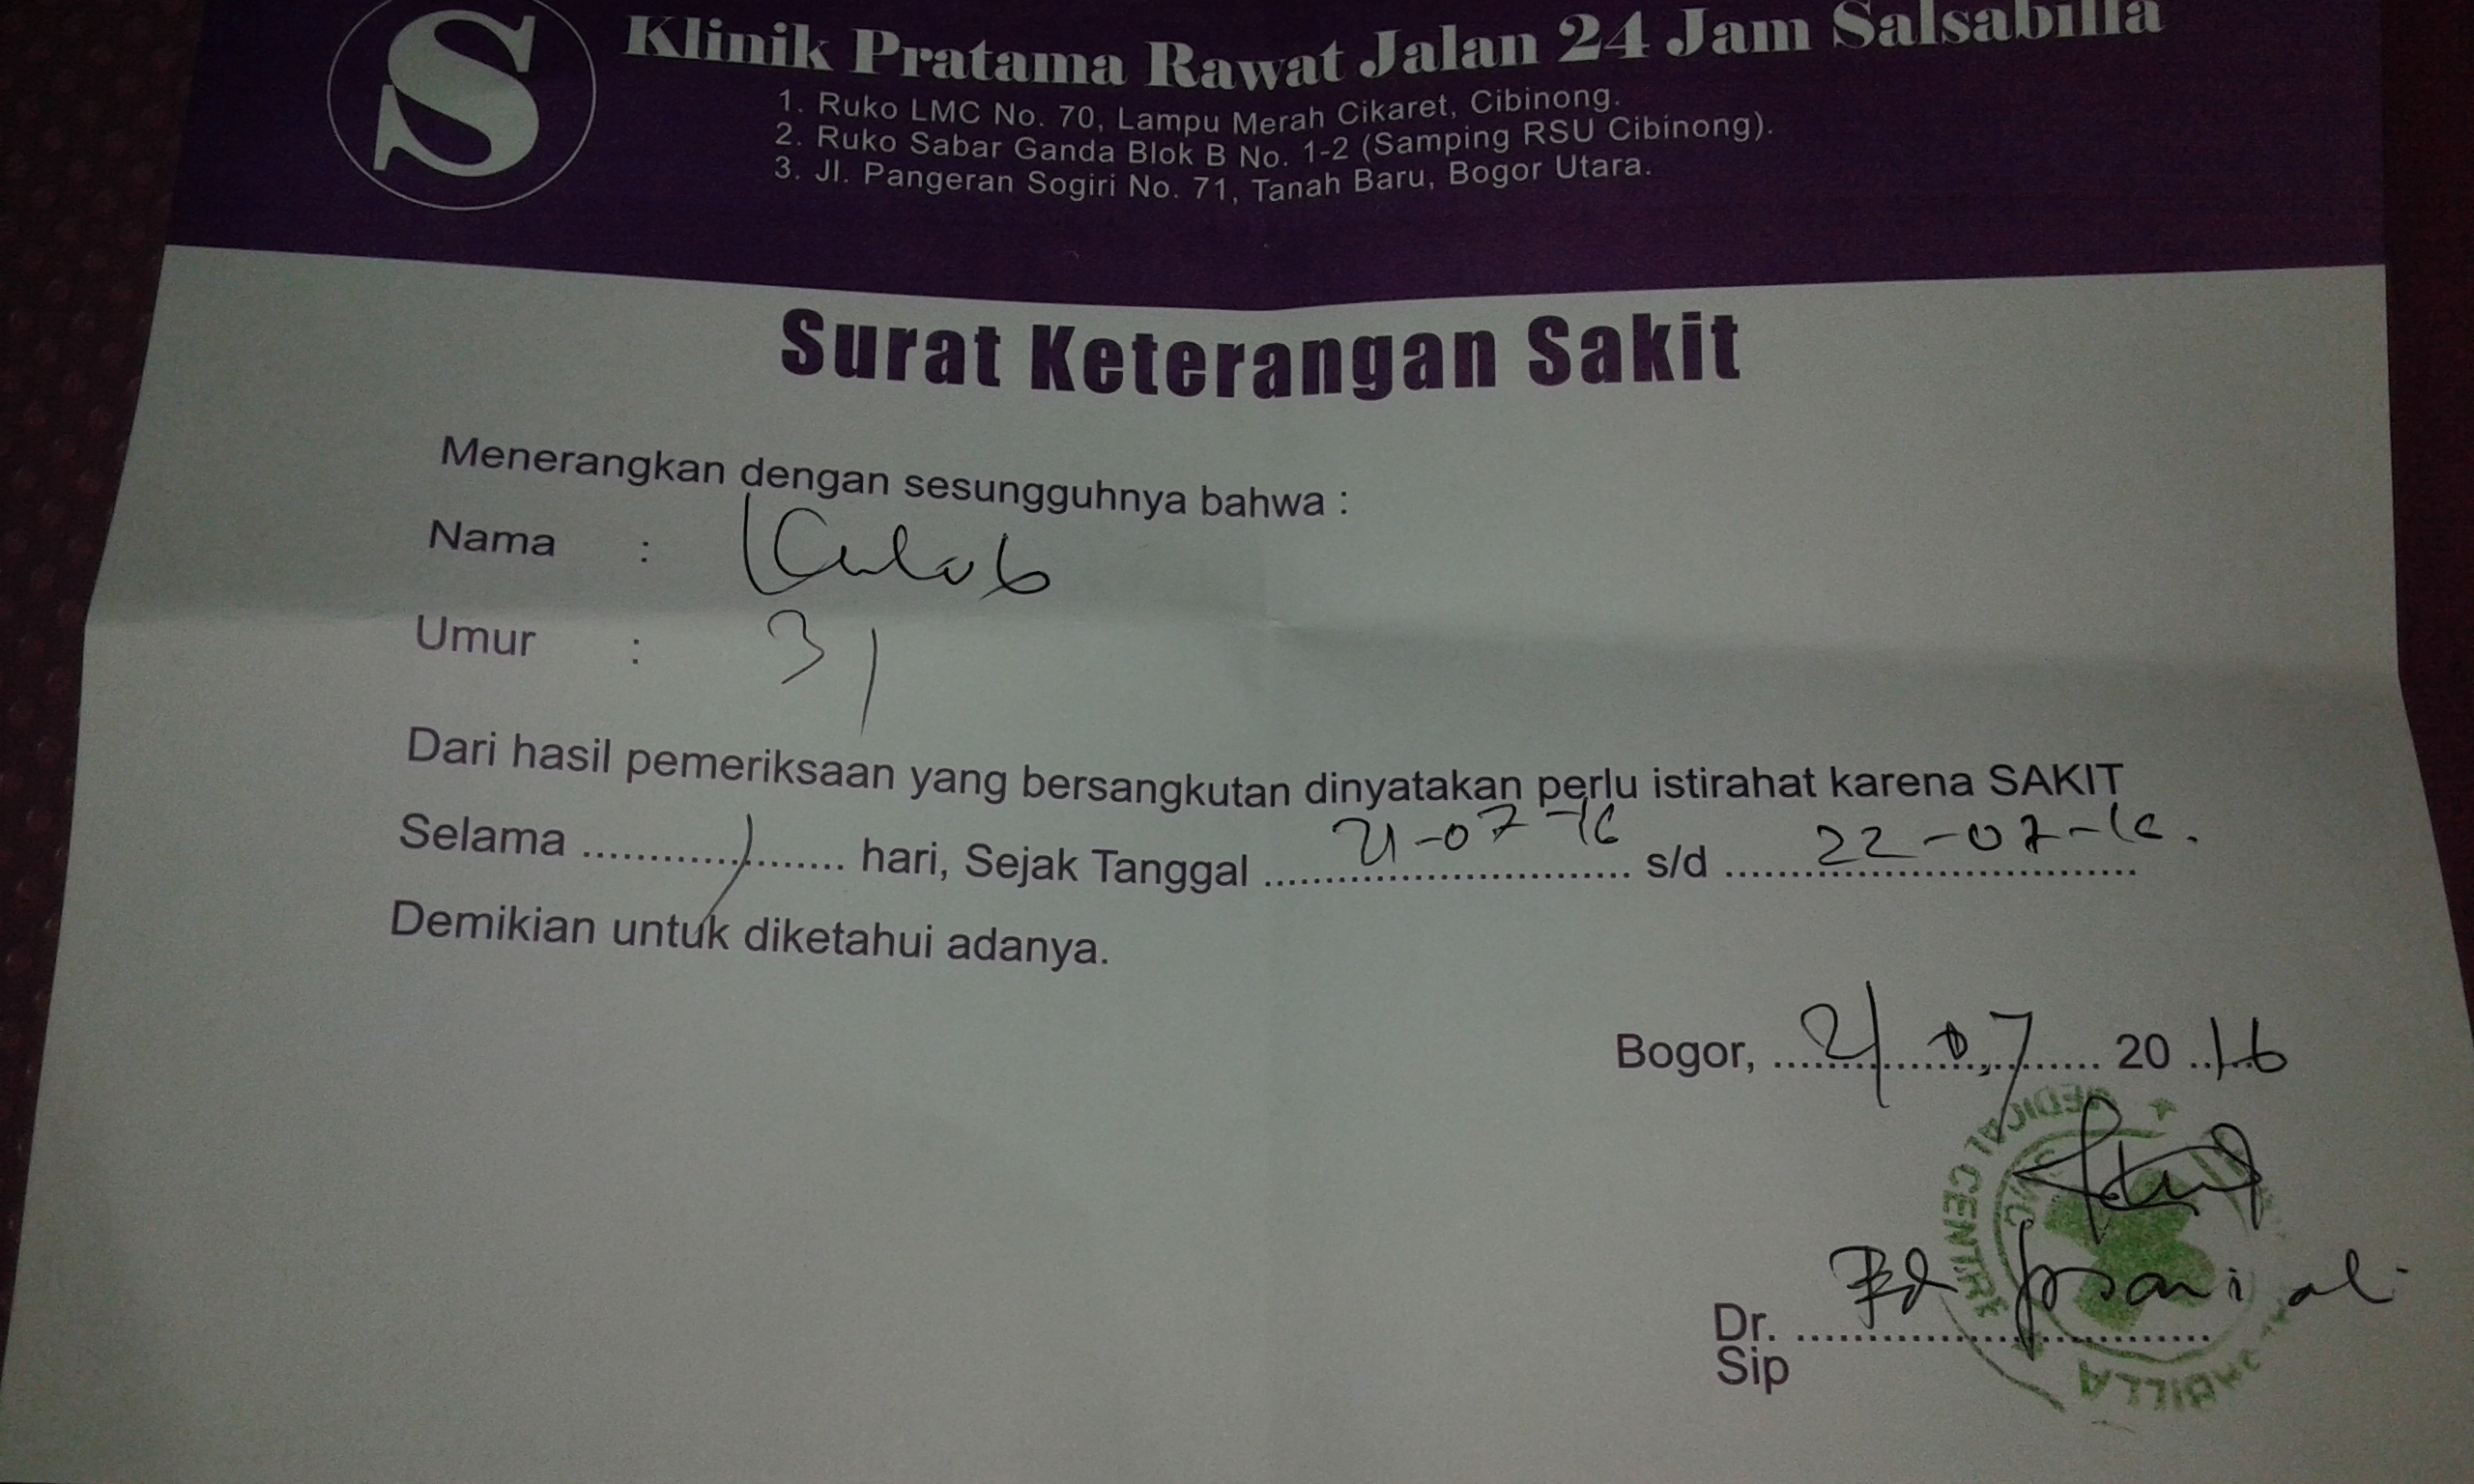 S
Klinik Pratama Rawat Jalan 24 Jam Salsabilla
1. Ruko LMC No. 70, Lampu Merah Cikaret, Cibinong.
2. Ruko Sabar Ganda Blok B No. 1-2 (Samping RSU Cibinong).
3. Jl. Pangeran Sogiri No. 71, Tanah Baru, Bogor Utara.
Surat Keterangan Sakit
Menerangkan dengan sesungguhnya bahwa :
Nama :
Umur : 31
Dari hasil pemeriksaan yang bersangkutan dinyatakan perlu istirahat karena SAKIT
Selama ......1...... hari, Sejak Tanggal 21-07-16 s/d 22-07-16.
Demikian untuk diketahui adanya.
Bogor, 21 07 2016
MEDICAL CENTRE
SMC
Dr.
Sip